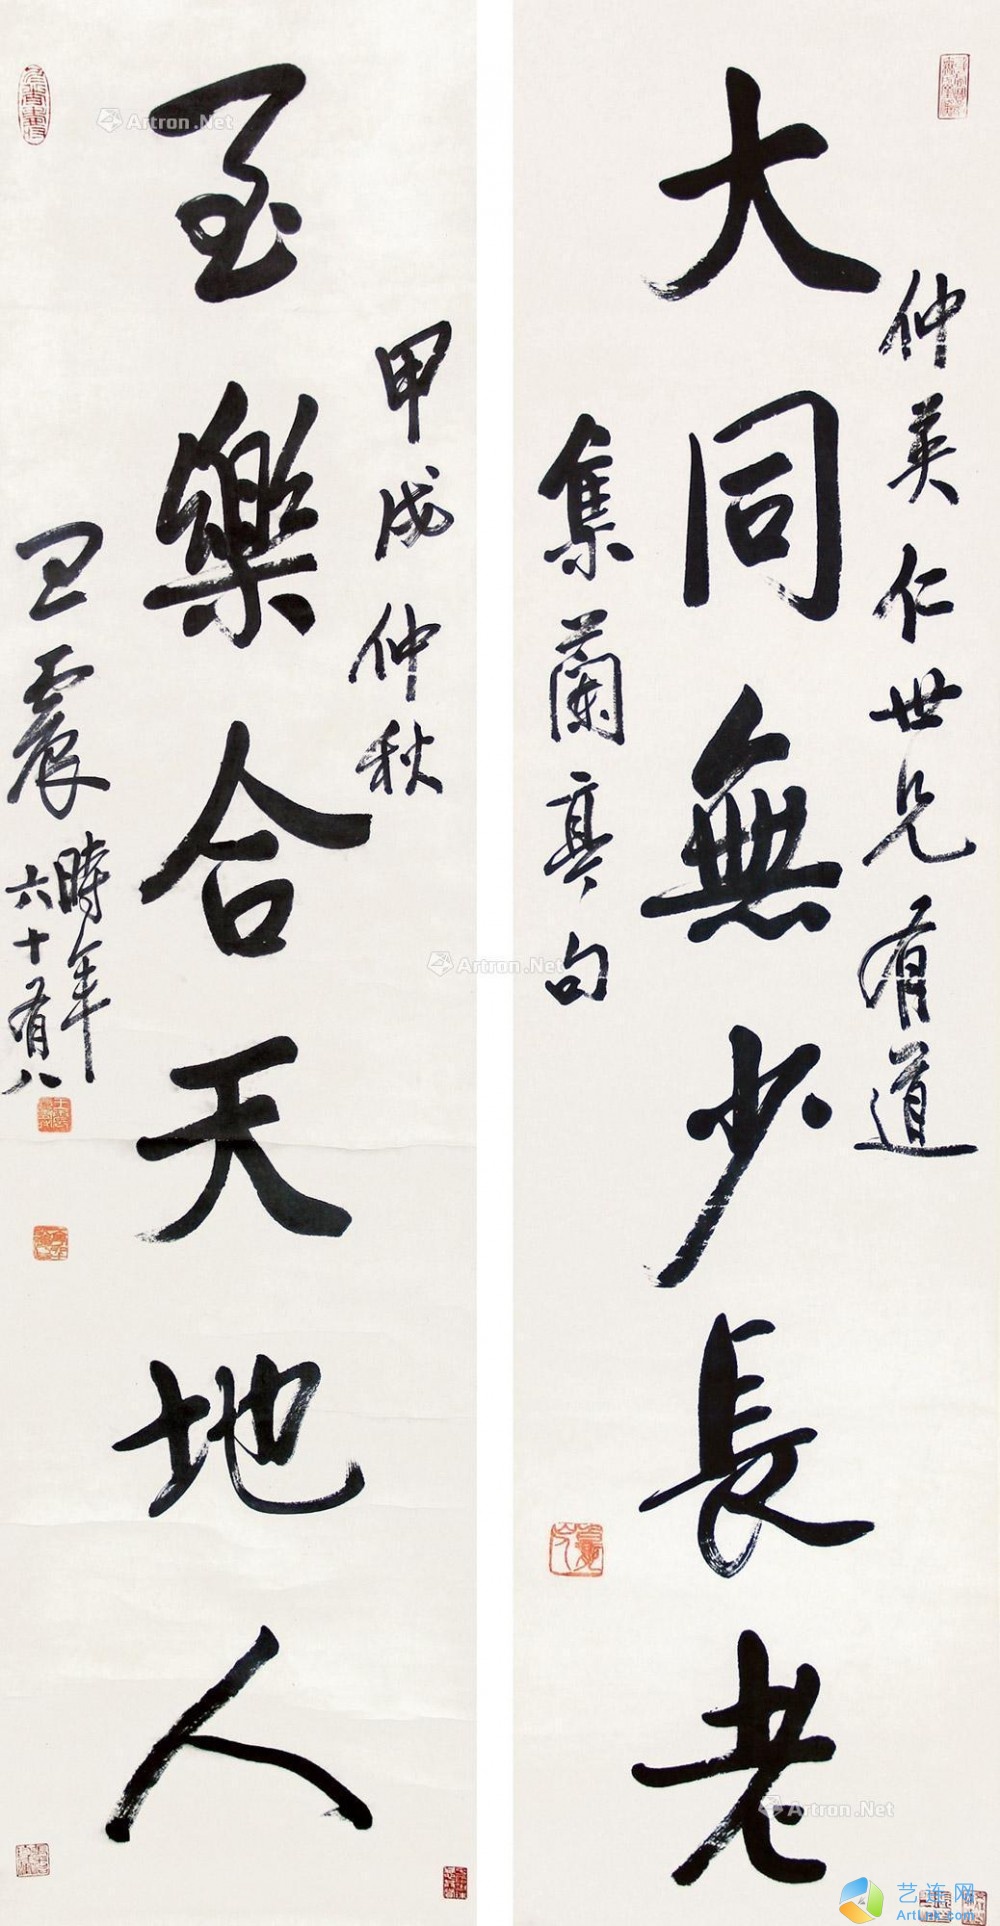 仲英仁世兄有道
大同無少長老
集蘭亭句
甲戌仲秋
至樂合天地人
王震時年
六十有八
Artron.Net
Artron.Net
Artron.Net
艺连网
ArtLnk.com